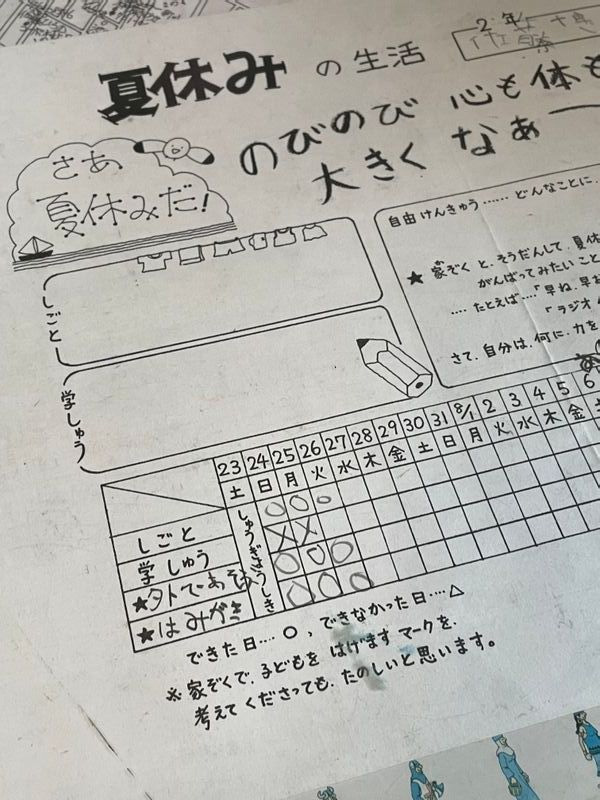 2年
夏休みの生活
のびのび 心も体も
大きく なぁー
さあ、
夏休みだ!
しごと
学しゅう
自由けんきゅう……どんなことに
★家ぞくと、そうだんして、夏休
がんばってみたいこと
…… たとえば……「早ね、早お
「ラジオ
さて、自分は、何に、力を
23 24 25 26 27 28 29 30 31 8/1 2 3 4 5 6
土 日 月 火 水 木 金 土 日 月 火 水 木 金 土
しゅうぎょうしき
しごと
学しゅう
★外であそぶ
★はみがき
できた日…○、できなかった日…△
※家ぞくで、子どもを はげます マークを、
考えてくださっても、たのしいと思います。